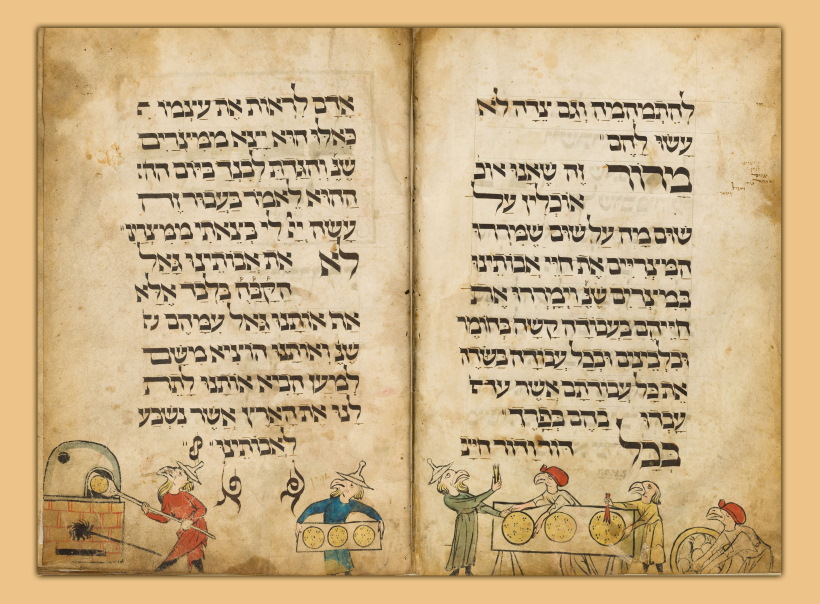 להתמהמה וגם צדה לא
עשו להם
מרור זה שאנו אוכ
אוכלין על
שום מה על שום שמררו
המצריים את חיי אבותינו
במצרים שנ' וימררו את
חייהם בעבודה קשה בחומר
ובלבנים ובכל עבודה בשדה
את כל עבודתם אשר
עבדו בהם בפרך
בכל דור ודור חייב
אדם לראות את עצמו כ
כאלו הוא יצא ממצרים
שנ' והגדת לבנך ביום ההו
ההוא לאמר בעבור זה
עשה ייי לי בצאתי ממצרים
לא את אבותינו גאל
הקב״ה בלבד אלא
את אותנו גאל עמהם
שנ' ואותנו הוציא משם
למען הביא אותנו לתת
לנו את הארץ אשר נשבע
לאבותינו